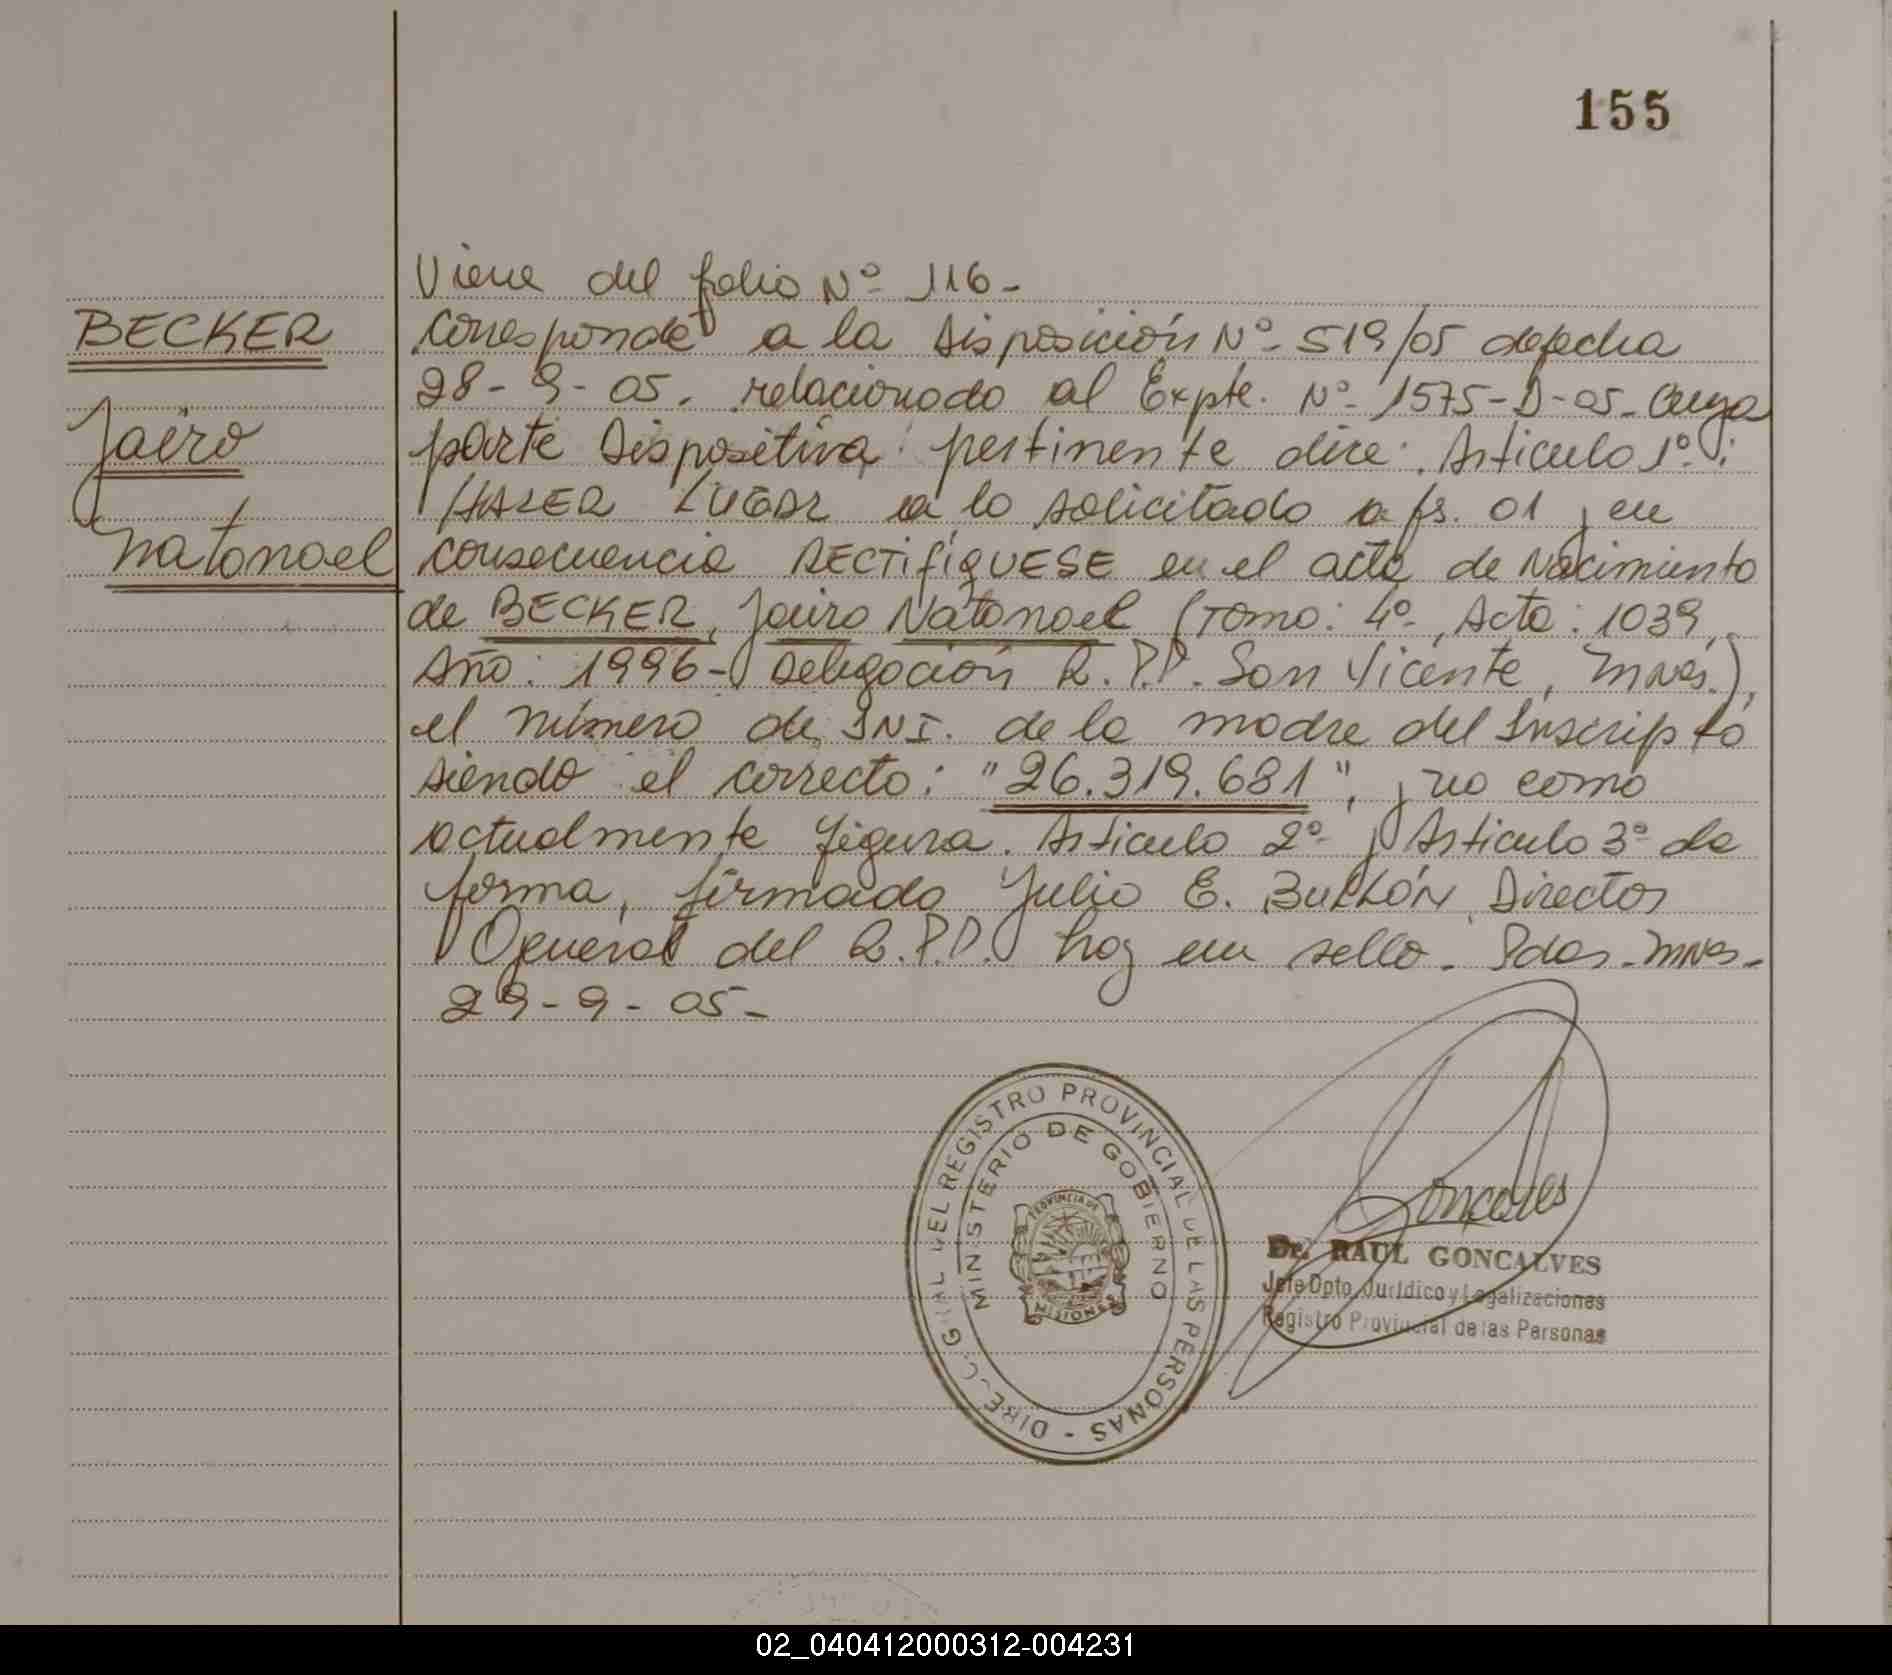 155
BECKER
Jairo
Natanael
Viene del folio Nº 116-
Corresponde a la Disposición Nº 519/05 de fecha
28-9-05. relacionado al Expte. Nº 1575-D-05- Cuya
parte Dispositiva pertinente dice: Articulo 1º:
HACER LUGAR a lo solicitado a fs. 01 y en
consecuencia RECTIFIQUESE en el acta de Nacimiento
de BECKER, Jairo Natanael (Tomo: 4º, Acta: 1039,
Año: 1996- Delegación R.P.P. San Vicente, Mnes.),
el número de DNI. de la madre del Inscripto
siendo el correcto: "26.319.681", y no como
actualmente figura. Articulo 2º y Articulo 3º de
forma, firmado Julio E. Director
General del R.P.P. hay un sello. Pdas-Mnes-
29-9-05-
DIREC. GRAL DEL REGISTRO PROVINCIAL DE LAS PERSONAS -
MINISTERIO DE GOBIERNO
PROVINCIA DE
MISIONES
Goncalves
Dr. RAUL GONCALVES
Jefe Dpto. Jurídico y Legalizaciones
Registro Provincial de las Personas
02_040412000312-004231